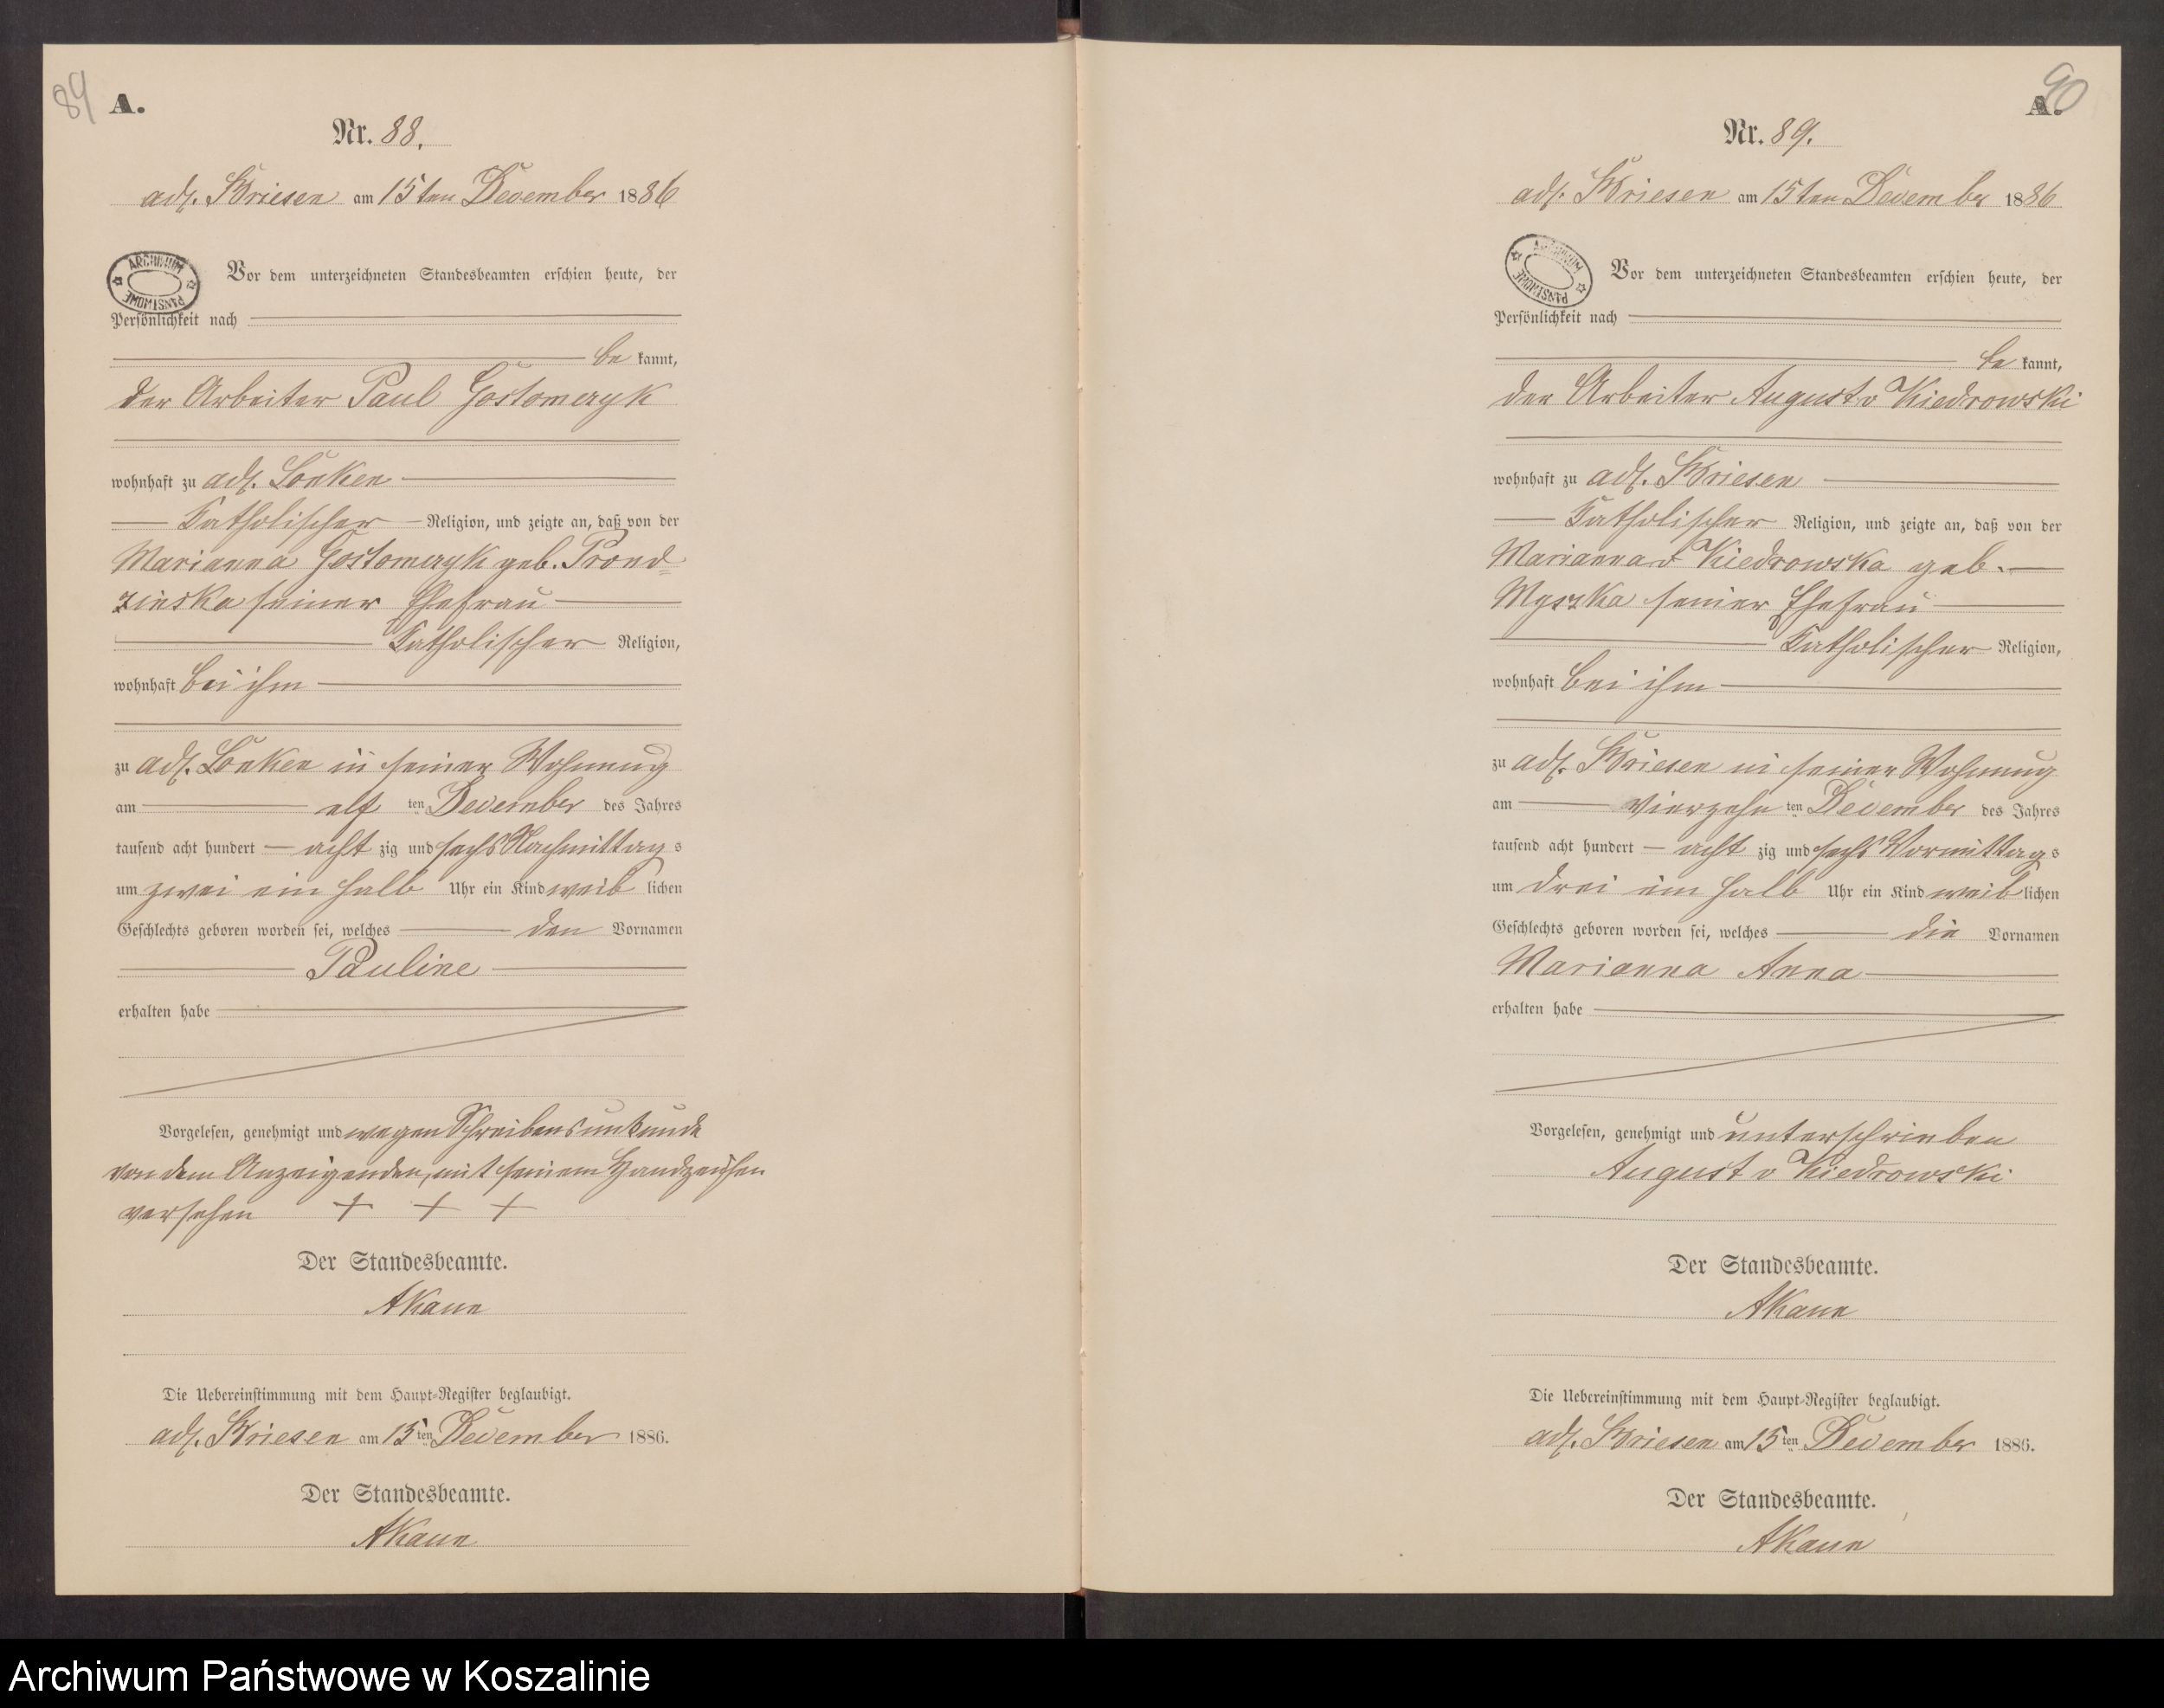 89
A.
Nr. 88.
adl. Briesen am 15ten December 1886
ARCHIWUM PAŃSTWOWE
Vor dem unterzeichneten Standesbeamten erschien heute, der
Persönlichkeit nach
be kannt,
der Arbeiter Paul Gostomczyk
wohnhaft zu adl. Lonken
Katholischer Religion, und zeigte an, daß von der
Marianna Gostomczyk geb. Prond-
zinska seiner Ehefrau
Katholischer Religion,
wohnhaft bei ihm
zu adl. Lonken in seiner Wohnung
am elf ten December des Jahres
tausend acht hundert acht zig und sechs Nachmittags
um zwei ein halb Uhr ein Kind weib lichen
Geschlechts geboren worden sei, welches den Vornamen
Pauline
erhalten habe
Vorgelesen, genehmigt und wegen Schreibensunkunde
von dem Anzeigenden, mit seinem Handzeichen
versehen + + +
Der Standesbeamte.
AKaun
Die Uebereinstimmung mit dem Haupt-Register beglaubigt.
adl. Briesen am 15ten December 1886.
Der Standesbeamte.
AKaun
90
A.
Nr. 89.
adl. Briesen am 15ten December 1886
ARCHIWUM PAŃSTWOWE
Vor dem unterzeichneten Standesbeamten erschien heute, der
Persönlichkeit nach
be kannt,
der Arbeiter August v Kiedrowski
wohnhaft zu adl. Briesen
Katholischer Religion, und zeigte an, daß von der
Marianna v Kiedrowska geb.
Myszka seiner Ehefrau
Katholischer Religion,
wohnhaft bei ihm
zu adl. Briesen in seiner Wohnung
am vierzehn ten December des Jahres
tausend acht hundert acht zig und sechs Vormittags
um drei ein halb Uhr ein Kind weib lichen
Geschlechts geboren worden sei, welches die Vornamen
Marianna Anna
erhalten habe
Vorgelesen, genehmigt und unterschrieben
August v Kiedrowski
Der Standesbeamte.
AKaun
Die Uebereinstimmung mit dem Haupt-Register beglaubigt.
adl. Briesen am 15ten December 1886.
Der Standesbeamte.
AKaun
Archiwum Państwowe w Koszalinie